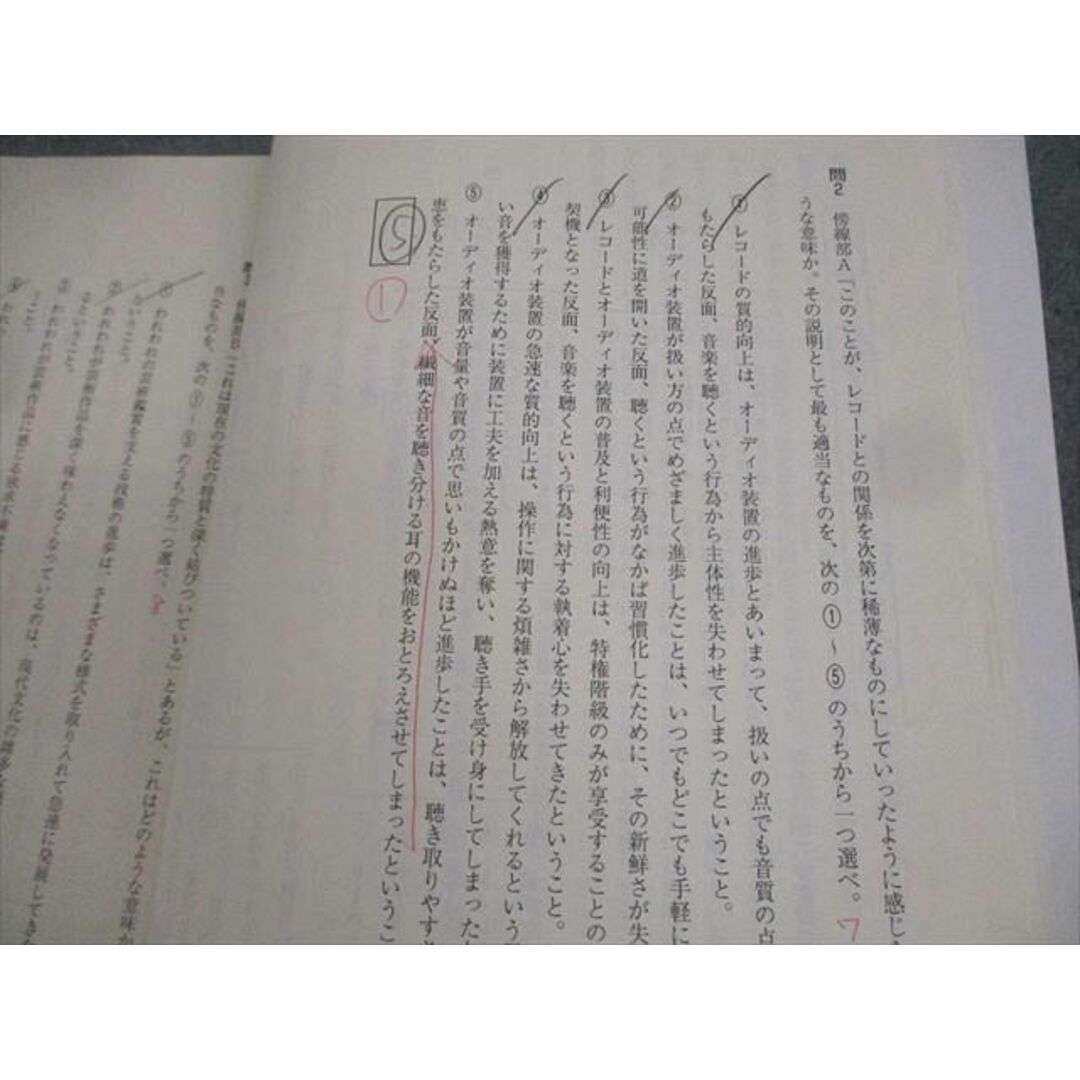 問2 傍線部A「このことが、レコードとの関係を次第に稀薄なものにしていったように感じ
うな意味か。その説明として最も適当なものを、次の①～⑤のうちから一つ選べ。
7
① レコードの質的向上は、オーディオ装置の進歩とあいまって、扱いの点でも音質の点
もたらした反面、音楽を聴くという行為から主体性を失わせてしまったということ。
② オーディオ装置が扱い方の点でめざましく進歩したことは、いつでもどこでも手軽に
可能性に道を開いた反面、聴くという行為がなかば習慣化したために、その新鮮さが失
③ レコードとオーディオ装置の普及と利便性の向上は、特権階級のみが享受することの
契機となった反面、音楽を聴くという行為に対する執着心を失わせてきたということ。
④ オーディオ装置の急速な質的向上は、操作に関する煩雑さから解放してくれるという
い音を獲得するために装置に工夫を加える熱意を奪い、聴き手を受け身にしてしまった
⑤ オーディオ装置が音量や音質の点で思いもかけぬほど進歩したことは、聴き取りやす
恵をもたらした反面、繊細な音を聴き分ける耳の機能をおとろえさせてしまったというこ
⑤
①
問3 傍線部B「これは現在の文化の特質と深く結びついている」とあるが、これはどのような意味か
当なものを、次の①～⑤のうちから一つ選べ。
8
① われわれの芸術鑑賞を支える技術の進歩は、さまざまな様式を取り入れて急速に発展してき
ということ。
② われわれが芸術作品を深く味わえなくなっているのは、現代文化の
るということ。
③ われわれが芸術作品に感じる
こと。